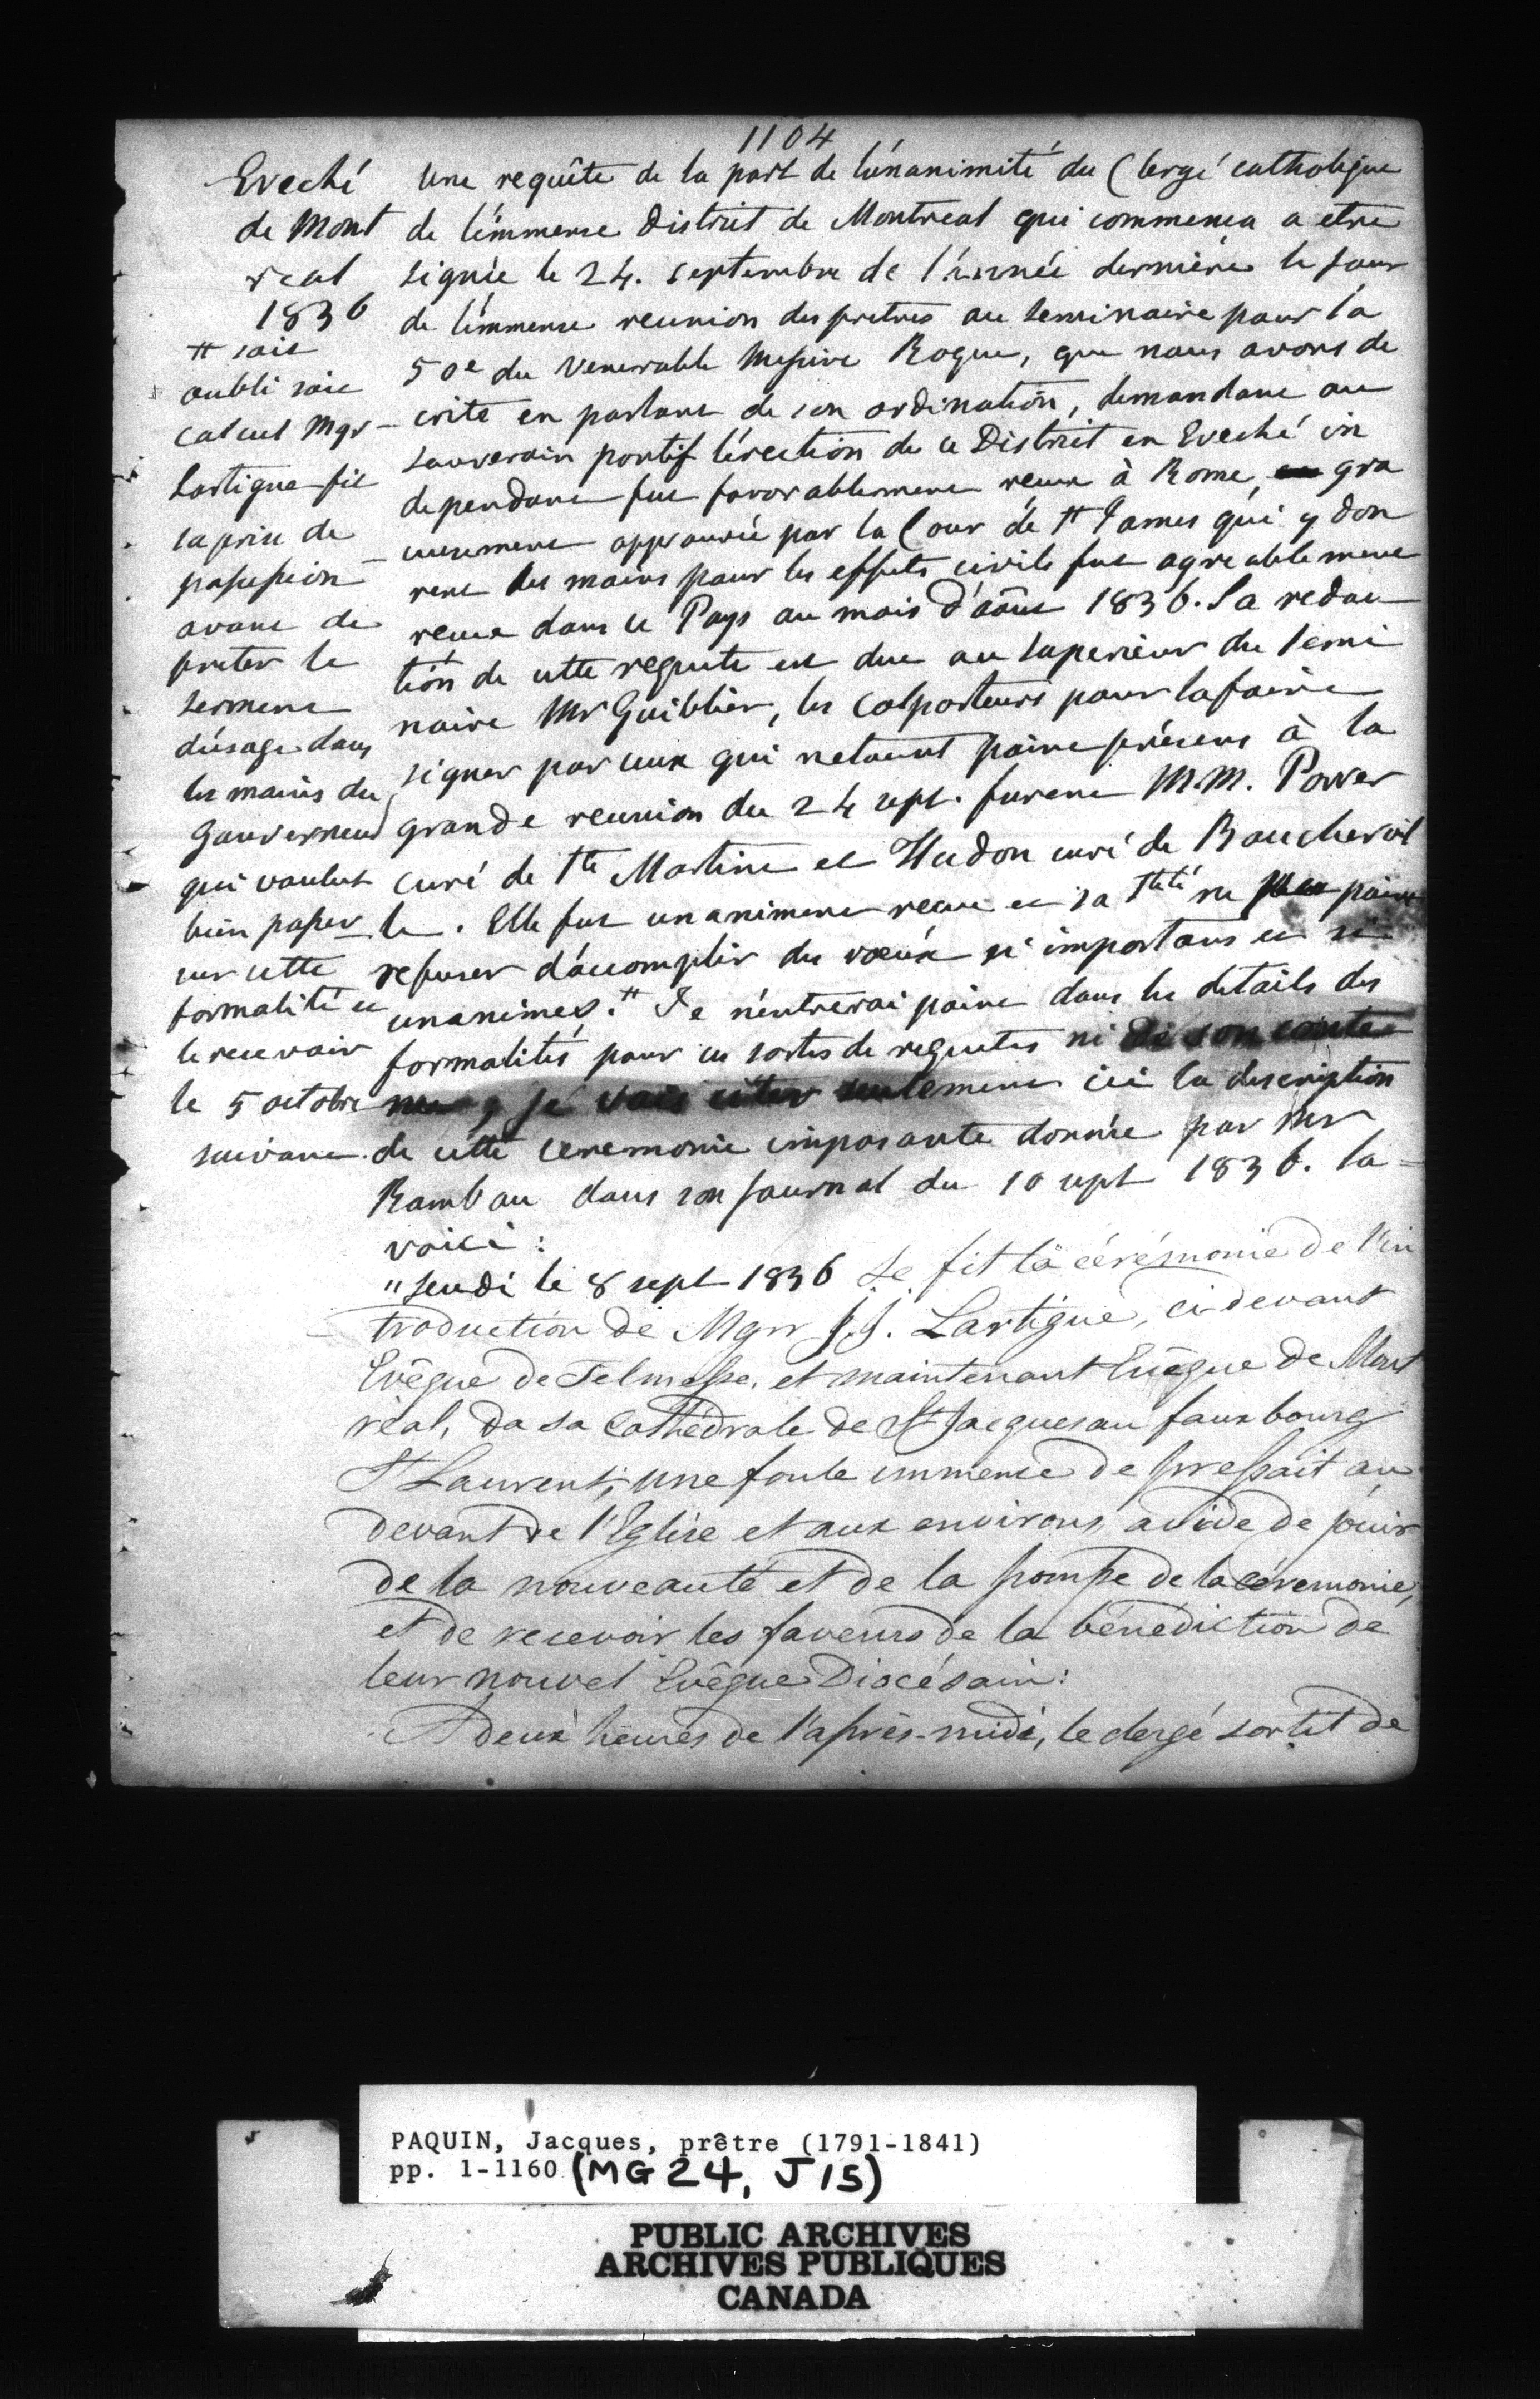 1104
Eveché
de Mont
real
1836
# soit
oubli soit
calcul Mgr
Lartigue fit
sa prise de
possession
avant de
preter le
serment
d'usage dans
les mains du
Gouverneur
qui voulut
bien passer
sur cette
formalité et
le recevoir
le 5 octobre
suivant.
Une requête de la part de l'únanimité du Clergé catholique
de l'immense District de Montreal qui commenca a etre
signée le 24. septembre de l'année dernière le jour
de l'immense reunion des pretres au seminaire pour la
50e du Venerable Messire Roque, que nous avons de
crite en parlant de son ordination, demandant au
souverain pontif l'érection de ce District en Eveché in
dependant fut favorablement recue à Rome, gra
cieusement approuvée par la Cour de St James qui y don
rent les mains pour les effets civils fut agreablement
recue dans ce Pays au mois d'aôut 1836. La redac
tion de cette requete est due au superieur du Semi
naire Mr Quiblier, les colporteurs pour la faire
signer par ceux qui netaient point présens à la
grande reunion du 24 sept. furent M.M. Power
curé de Ste Martine et Hudon curé de Bouchervil
le. Elle fut unanimement recue et sa Steté ne point
refuser d'accomplir des vœux si importans et si
unanimes. # Je n'entrerai point dans les details des
formalités pour ces sortes de requetes ni de son conte
nu, je vais citer seulement ici la description
de cette ceremonie imposante donnée par Mr
Rambau dans son journal du 10 sept 1836. la
voici :
"Jeudi le 8 sept 1836 se fit la cérémonie de l'in
troduction de Mgr J.J. Lartigue, ci devant
Evêque de Telmesse, et maintenant Evêque de Mont
réal, da sa Cathédrale de St Jacques au faux bourg
St Laurent; une foule immense de pressait au
devant de l'Eglise et aux environs, avide de jouir
de la nouveauté et de la pompe de la cérémonie,
et de recevoir les faveurs de la bénédiction de
leur nouvel Evêque Diocésain :
A deux heures de l'après-midi, le clergé sortit de
PAQUIN, Jacques, prêtre (1791-1841)
pp. 1-1160 (MG 24, J 15)
PUBLIC ARCHIVES
ARCHIVES PUBLIQUES
CANADA